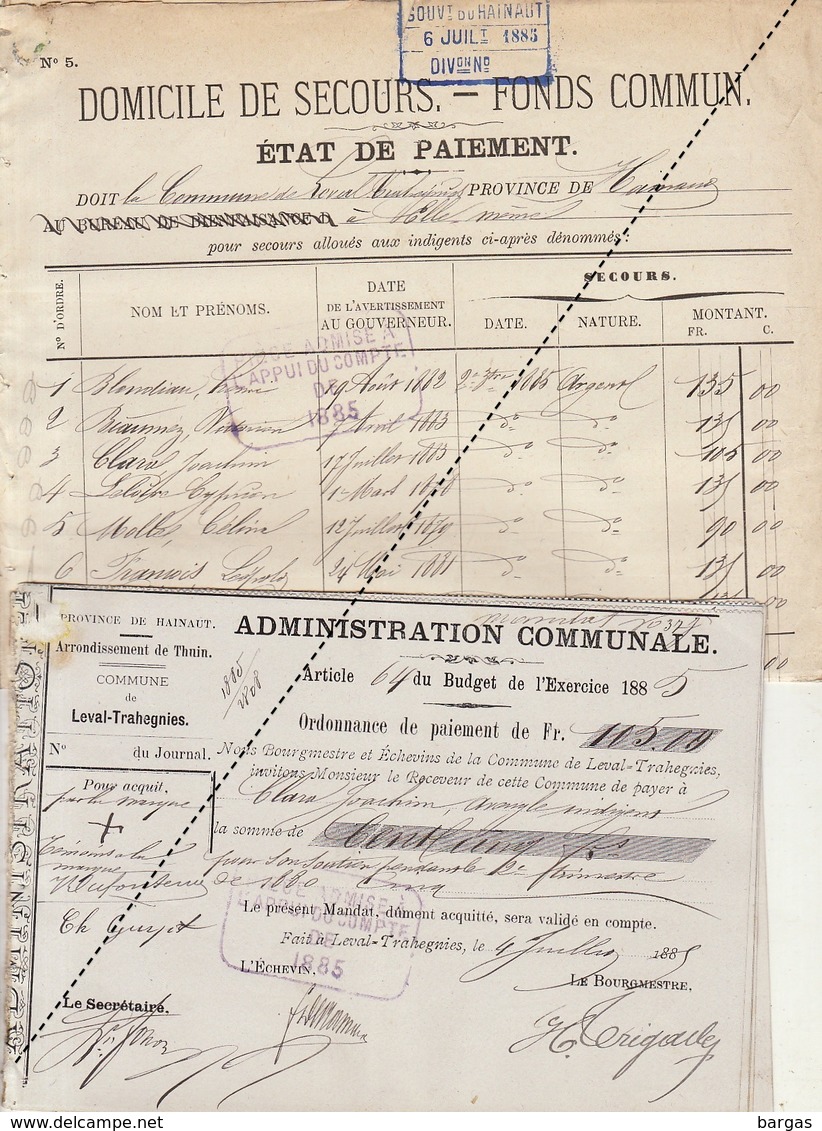 GOUVT DU HAINAUT
6 JUILT 1885
DIVON NO
No 5.
DOMICILE DE SECOURS. — FONDS COMMUN.
ÉTAT DE PAIEMENT.
DOIT la Commune de Leval Trahegnies PROVINCE DE Hainaut
AU BUREAU DE BIENFAISANCE D à Elle même
pour secours alloués aux indigents ci-après dénommés :
No D'ORDRE.
NOM ET PRÉNOMS.
DATE
DE L'AVERTISSEMENT
AU GOUVERNEUR.
SECOURS.
DATE.
NATURE.
MONTANT.
FR. C.
PIÈCE ADMISE À
L'APPUI DU COMPTE
DE
1885
1 19 Août 1882 1885 Argent 135 00
2 Avril 1883 do do 135 00
3 Clara Joachim 17 Juillet 1883 do do 105 00
4 Cyprien 1r Mars do do 135 00
5 Célina 12 Juillet 1879 do do 90 00
6 François Léopold 24 Mai 1881 do do 135 00
PROVINCE DE HAINAUT.
Arrondissement de Thuin.
COMMUNE
de
Leval-Trahegnies.
No du Journal.
ADMINISTRATION COMMUNALE.
1885
2808
Article 64 du Budget de l'Exercice 1885
Ordonnance de paiement de Fr. 105.00
Nous Bourgmestre et Échevins de la Commune de Leval-Trahegnies,
invitons Monsieur le Receveur de cette Commune de payer à
Clara Joachim, aveugle indigent
la somme de Cent cinq frs
pour son soutien pendant le 2e trimestre
de 1880 cinq
Pour acquit,
par la marque
+
Témoins à la
marque
Ch
Le présent Mandat, dûment acquitté, sera validé en compte.
Fait à Leval-Trahegnies, le 4 Juillet 1885
PIÈCE ADMISE À
L'APPUI DU COMPTE
DE
1885
L'ÉCHEVIN,
LE BOURGMESTRE,
Le Secrétaire.
bargas